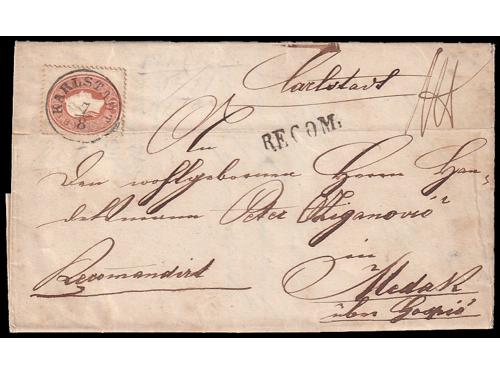 KARLSTADT
7/8
Carlstadt
RECOM.
An
Den wohlgebornen Herrn Han-
delsmann Peter Uzelanović
in
Recomandirt
Medak
über Gospić